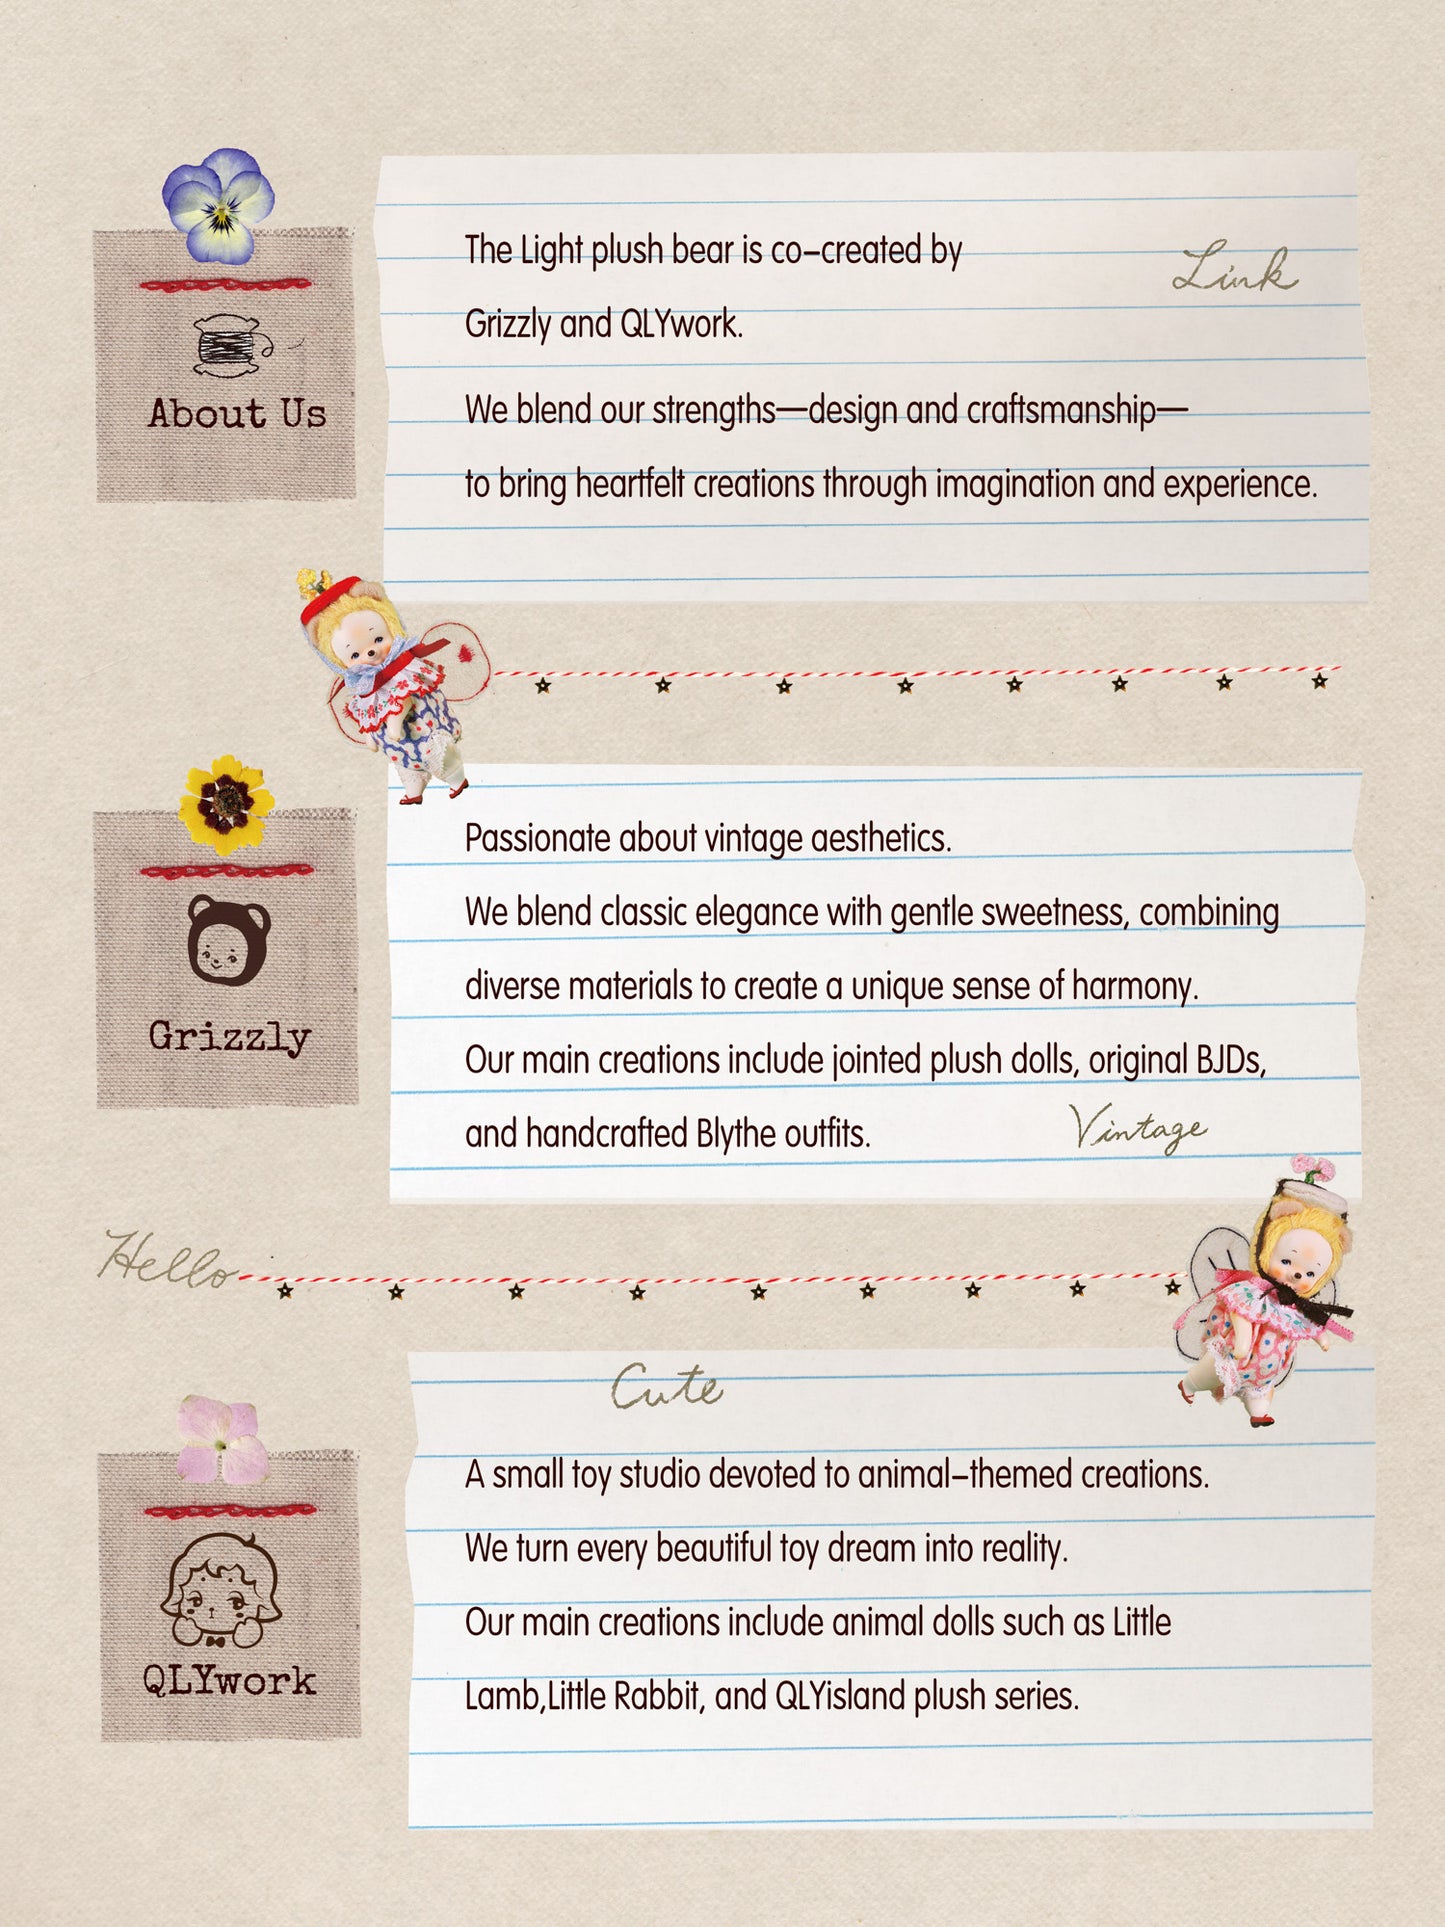 About Us
The Light plush bear is co-created by
Link
Grizzly and QLYwork.
We blend our strengths—design and craftsmanship—
to bring heartfelt creations through imagination and experience.
Grizzly
Passionate about vintage aesthetics.
We blend classic elegance with gentle sweetness, combining
diverse materials to create a unique sense of harmony.
Our main creations include jointed plush dolls, original BJDs,
and handcrafted Blythe outfits.
Vintage
Hello
Cute
QLYwork
A small toy studio devoted to animal-themed creations.
We turn every beautiful toy dream into reality.
Our main creations include animal dolls such as Little
Lamb,Little Rabbit, and QLYisland plush series.